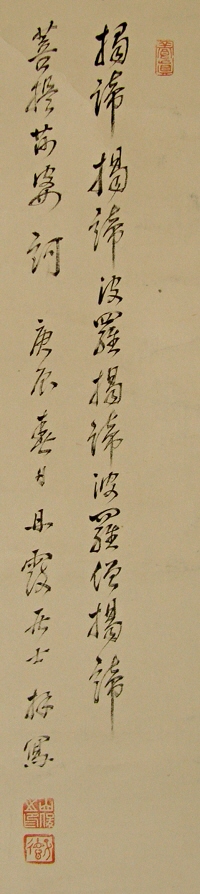 揭諦揭諦波羅揭諦波羅僧揭諦
菩提莎婆訶 庚辰春日丹霞居士